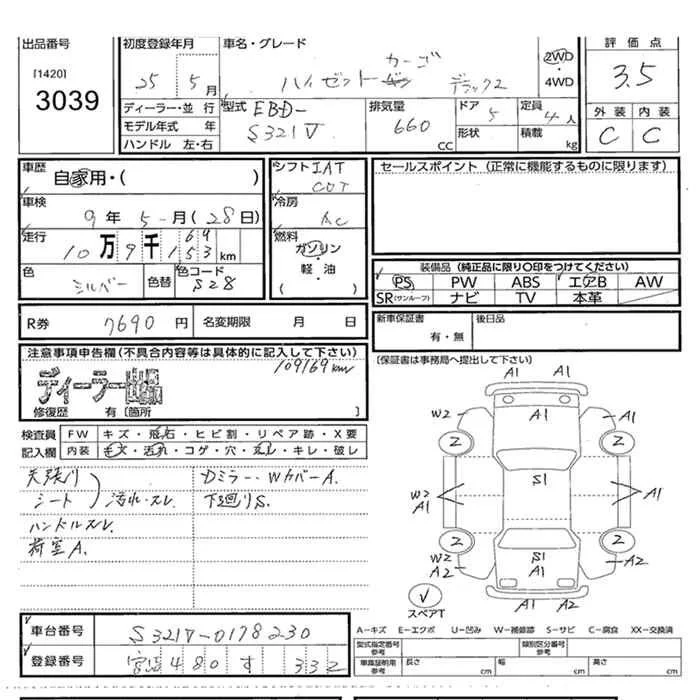 出品番号
[1420]
3039
初度登録年月
25年 5月
車名・グレード
ハイゼット カーゴ デラックス
2WD
・4WD
評価点
3.5
外装 内装
C C
ディーラー・並行
モデル年式 年
ハンドル 左・右
型式 EBD-
S321V
排気量
660 CC
ドア 5
形状
定員 4人
積載 kg
車歴
自家用・( )
車検
9年 5月(28日)
走行
10万9千153km
169
色
シルバー
色替
色コード
S28
シフト IAT
COT
冷房
AC
燃料
ガソリン
・軽油
( )
セールスポイント(正常に機能するものに限ります)
装備品(純正品に限り〇印をつけてください)
PS PW ABS エアB AW
SR(サンルーフ) ナビ TV 本革
R券 7690円 名変期限 月 日
新車保証書
有・無
後日品
注意事項申告欄(不具合内容等は具体的に記入して下さい)
109169km
ディーラー
修復歴 有[箇所 ]
(保証書は事務局へ提出して下さい)
検査員 FW キズ・飛石・ヒビ割・リペア跡・X要
記入欄 内装 キズ・汚れ・コゲ・穴・スレ・キレ・破レ
天張り
シート
汚れ・スレ
ハンドルスレ
荷室A.
Dミラー・WカバーA.
下廻りS.
A1
A1
W2
A1
A1
2
2
S1
W2
A1
A1
2
2
W2
A2
S1
A1
A2
A1
A2
スペアT
A-キズ E-エクボ U-凹み W-補修跡 S-サビ C-腐食 XX-交換済
車台番号 S321V-0178230
登録番号 宮崎480す332
型式指定番号
参考
類別区分番号
参考
車庫証明用
参考
長さ cm 幅 cm 高さ cm